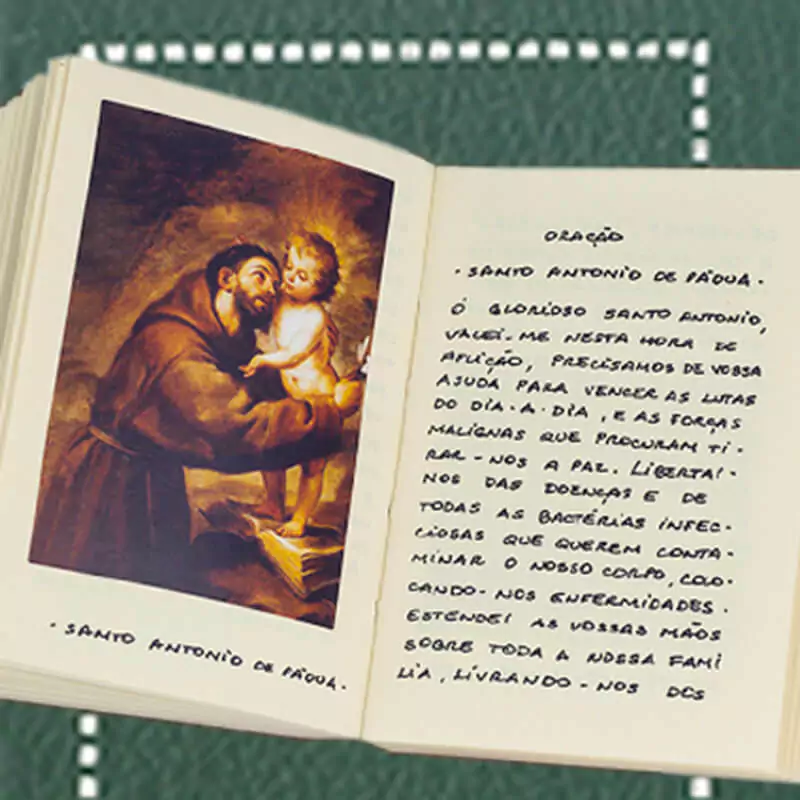 · SANTO ANTONIO DE PÁDUA ·
ORAÇÃO
· SANTO ANTONIO DE PÁDUA ·
Ó GLORIOSO SANTO ANTONIO,
VALEI-ME NESTA HORA DE
AFLIÇÃO, PRECISAMOS DE VOSSA
AJUDA PARA VENCER AS LUTAS
DO DIA-A-DIA, E AS FORÇAS
MALIGNAS QUE PROCURAM TI-
RAR-NOS A PAZ. LIBERTAI-
NOS DAS DOENÇAS E DE
TODAS AS BACTÉRIAS INFEC-
CIOSAS QUE QUEREM CONTA-
MINAR O NOSSO CORPO, COLO-
CANDO-NOS ENFERMIDADES.
ESTENDEI AS VOSSAS MÃOS
SOBRE TODA A NOSSA FAMÍ
LIA, LIVRANDO-NOS DOS